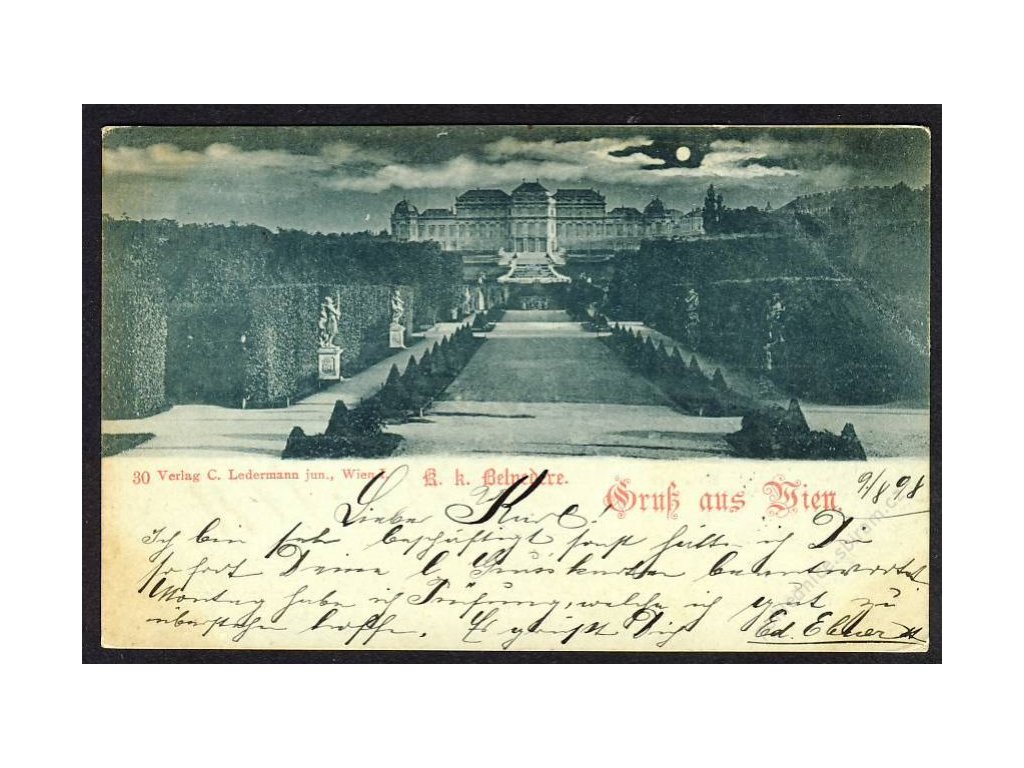 30 Verlag C. Ledermann jun., Wien I. K. k. Belvedere.
Gruß aus Wien 9/8 98
Lieber Kurt!
Ich bin sehr beschäftigt sonst hätte ich Dir
sofort Deine l. Grusskarten beantwortet
Montag habe ich Prüfung, welche ich gut zu
überstehen hoffe. Es grüßt Dich Ed. Ebner